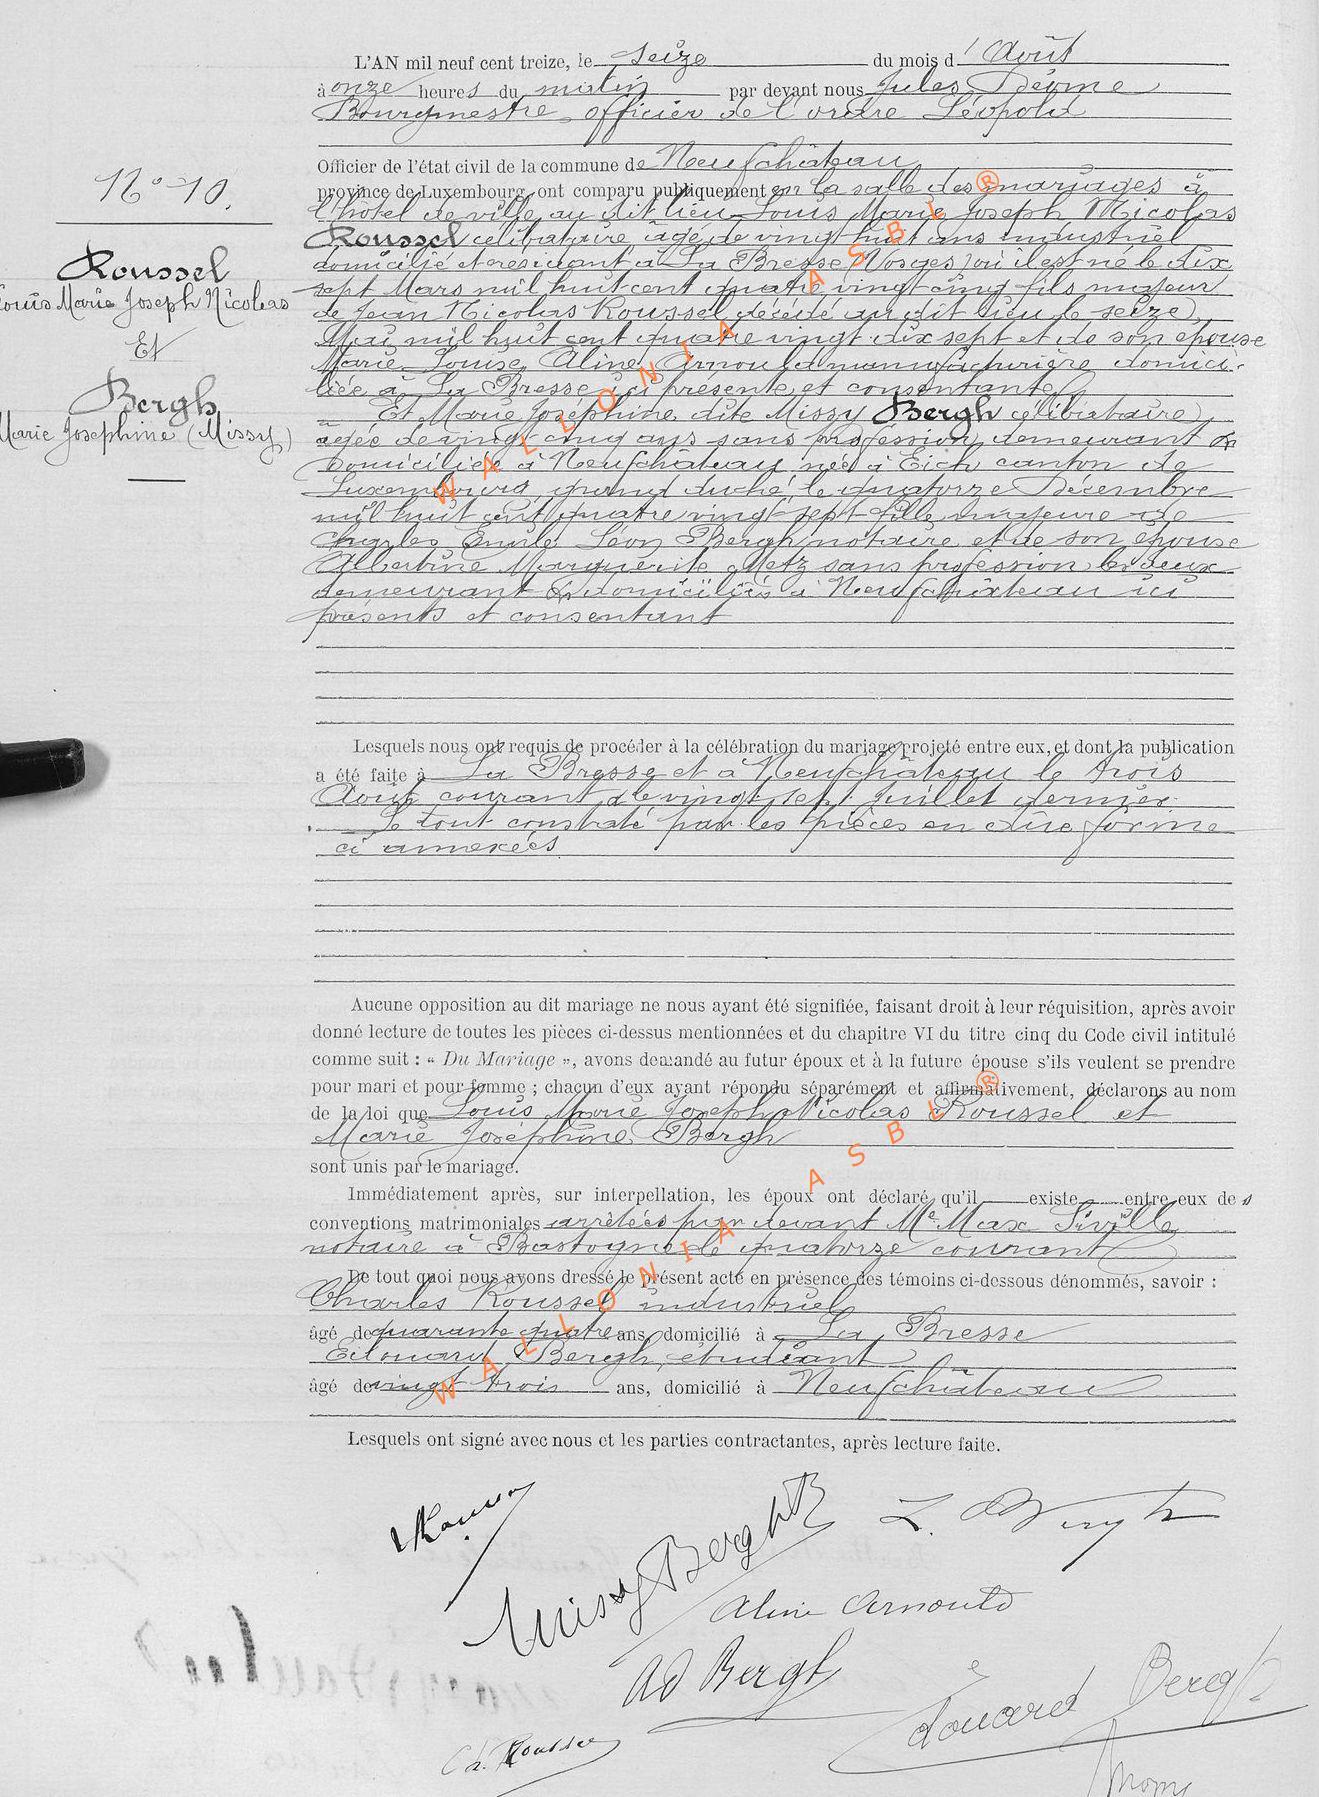 L'AN mil neuf cent treize, le seize du mois d'Août
à onze heures du matin par devant nous Jules Déome
Bourgmestre, officier de l'ordre Léopold
Officier de l'état civil de la commune de Neufchâteau
province de Luxembourg, ont comparu publiquement en la salle des mariages à
l'hôtel de ville au dit lieu Louis Marie Joseph Nicolas
Roussel célibataire âgé de vingt huit ans industriel
domicilié et résidant à La Bresse (Vosges) où il est né le dix
sept Mars mil huit cent quatre vingt cinq fils majeur
de Jean Nicolas Roussel décédé au dit lieu le seize
Mai mil huit cent quatre vingt dix sept et de son épouse
Marie Louise Aline Arnould manufacturière domici-
liée à La Bresse ici présente et consentante
Et Marie Joséphine dite Missy Bergh célibataire
agée de vingt cinq ans sans profession demeurant &
domiciliée à Neufchâteau née à Eich canton de
Luxembourg, grand duché, le quatorze Décembre
mil huit cent quatre vingt sept fille majeure de
Charles Emile Léon Bergh notaire et de son épouse
Albertine Marguerite Metz sans profession les deux
demeurant & domiciliés à Neufchâteau ici
présents et consentant
N° 10.
Roussel
Louis Marie Joseph Nicolas
Et
Bergh
Marie Josephine (Missy)
Lesquels nous ont requis de procéder à la célébration du mariage projeté entre eux, et dont la publication
a été faite à La Bresse et à Neufchâteau le trois
Août courant & le vingt sept Juillet dernier.
Le tout constaté par les pièces en due forme
ci annexées
Aucune opposition au dit mariage ne nous ayant été signifiée, faisant droit à leur réquisition, après avoir
donné lecture de toutes les pièces ci-dessus mentionnées et du chapitre VI du titre cinq du Code civil intitulé
comme suit : « Du Mariage », avons demandé au futur époux et à la future épouse s'ils veulent se prendre
pour mari et pour femme ; chacun d'eux ayant répondu séparément et affirmativement, déclarons au nom
de la loi que Louis Marie Joseph Nicolas Roussel et
Marie Joséphine Bergh
sont unis par le mariage.
Immédiatement après, sur interpellation, les époux ont déclaré qu'il existe entre eux des
conventions matrimoniales arrêtées par devant Me Max Siville
notaire à Bastogne le quatorze courant
De tout quoi nous avons dressé le présent acte en présence des témoins ci-dessous dénommés, savoir :
Charles Roussel industriel
âgé de quarante quatre ans, domicilié à La Bresse
Edouard Bergh, étudiant
âgé de vingt trois ans, domicilié à Neufchâteau
Lesquels ont signé avec nous et les parties contractantes, après lecture faite.
L. Bergh
Missy Bergh
Aline Arnould
Ad Bergh
Edouard Bergh
Ch. Roussel
WALLONIA ASBL ®
WALLONIA ASBL ®